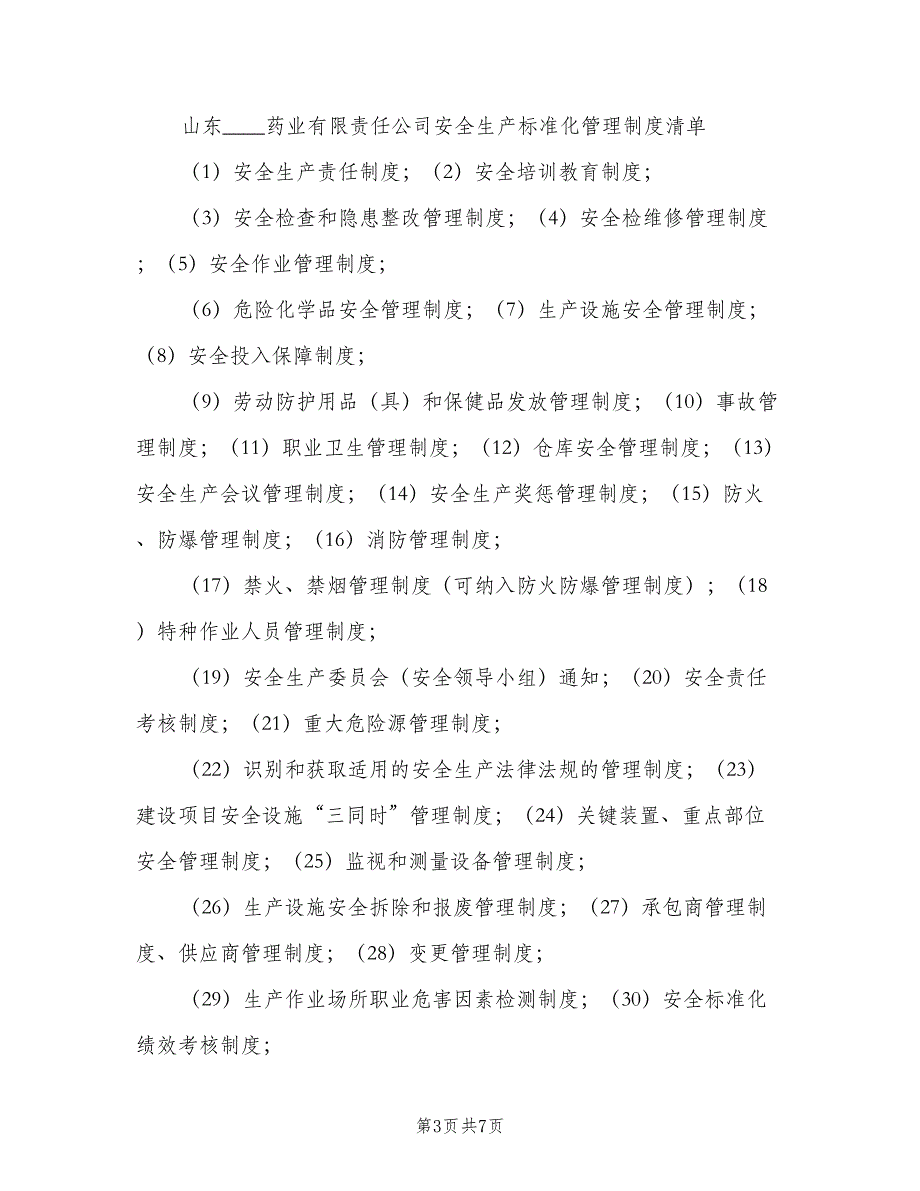 山东____药业有限责任公司安全生产标准化管理制度清单
（1）安全生产责任制度；（2）安全培训教育制度；
（3）安全检查和隐患整改管理制度；（4）安全检维修管理制度
；（5）安全作业管理制度；
（6）危险化学品安全管理制度；（7）生产设施安全管理制度；
（8）安全投入保障制度；
（9）劳动防护用品（具）和保健品发放管理制度；（10）事故管
理制度；（11）职业卫生管理制度；（12）仓库安全管理制度；（13）
安全生产会议管理制度；（14）安全生产奖惩管理制度；（15）防火
、防爆管理制度；（16）消防管理制度；
（17）禁火、禁烟管理制度（可纳入防火防爆管理制度）；（18
）特种作业人员管理制度；
（19）安全生产委员会（安全领导小组）通知；（20）安全责任
考核制度；（21）重大危险源管理制度；
（22）识别和获取适用的安全生产法律法规的管理制度；（23）
建设项目安全设施“三同时”管理制度；（24）关键装置、重点部位
安全管理制度；（25）监视和测量设备管理制度；
（26）生产设施安全拆除和报废管理制度；（27）承包商管理制
度、供应商管理制度；（28）变更管理制度；
（29）生产作业场所职业危害因素检测制度；（30）安全标准化
绩效考核制度；
第3页共7页